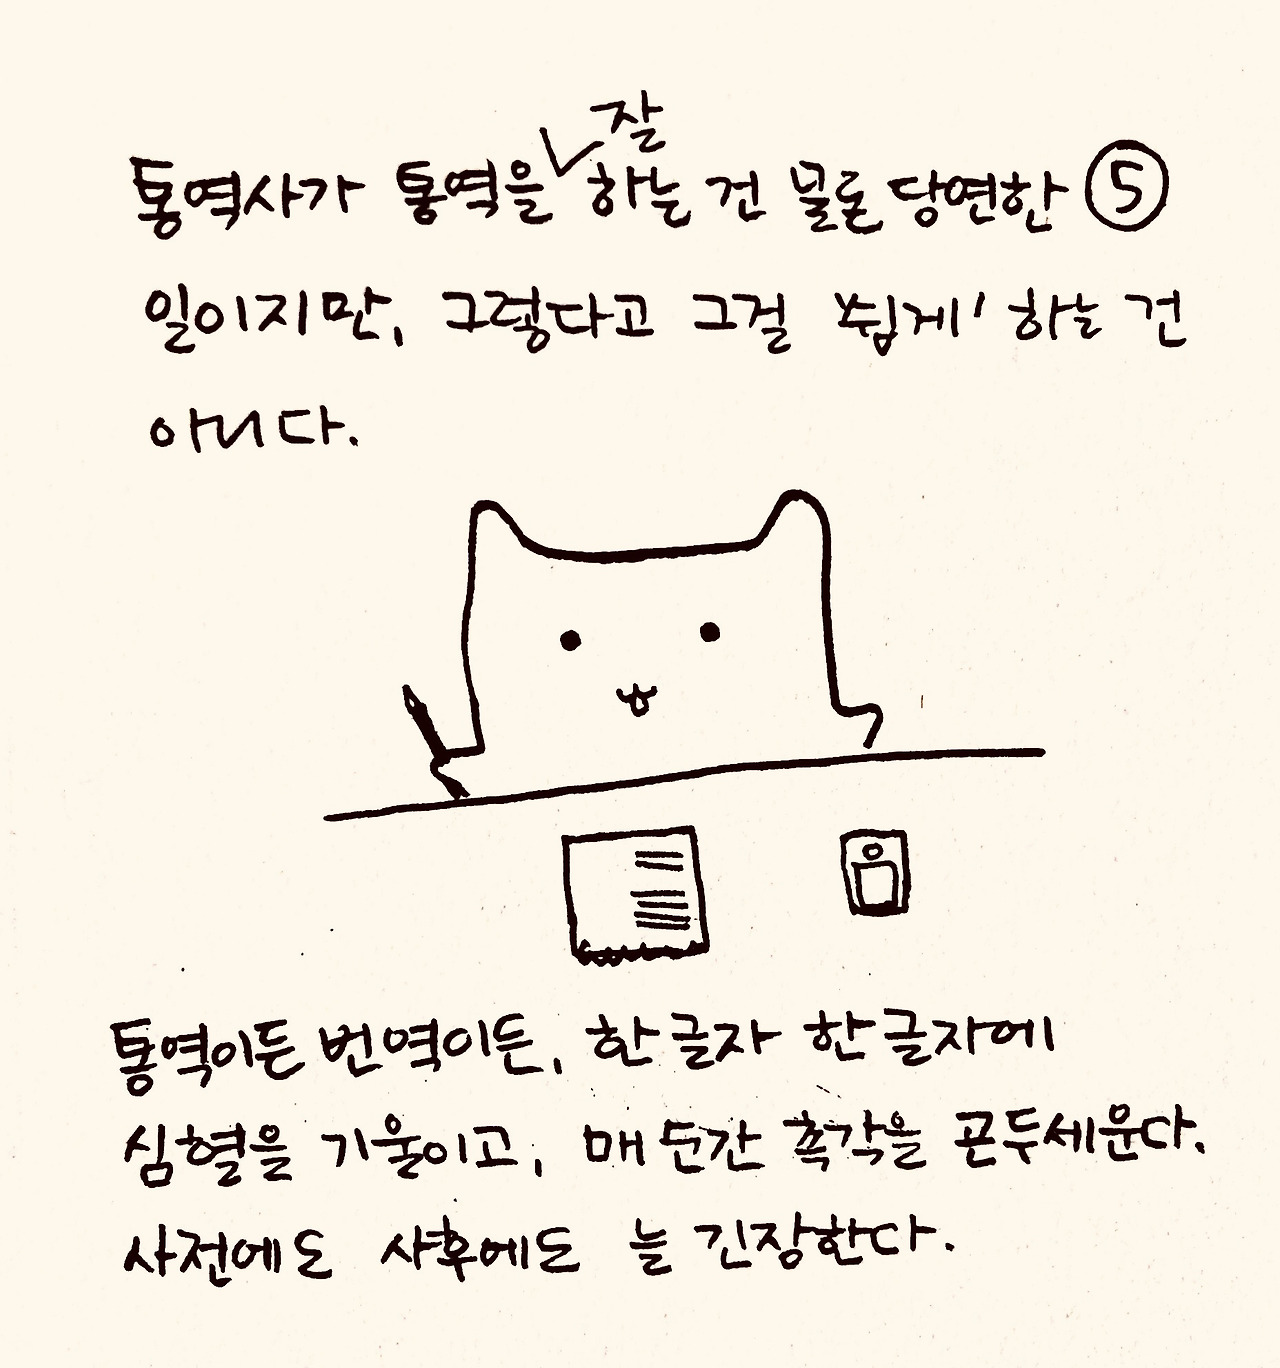 통역사가 통역을 잘 하는 건 물론 당연한 ⑤
일이지만, 그렇다고 그걸 '쉽게' 하는 건
아니다.
통역이든 번역이든, 한 글자 한 글자에
심혈을 기울이고, 매 순간 촉각을 곤두세운다.
사전에도 사후에도 늘 긴장한다.